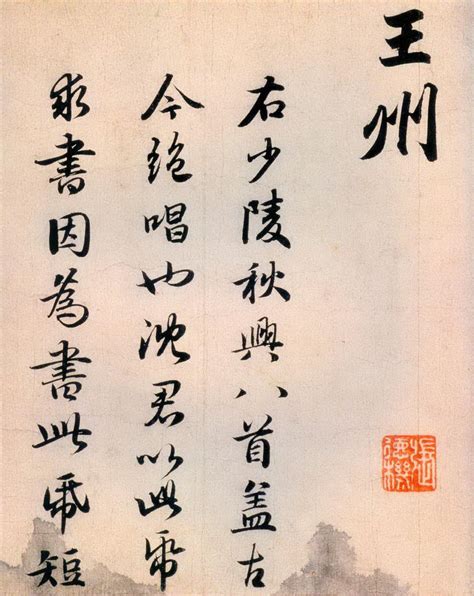 王州
右少陵秋興八首盖古
今絶唱也沈君以此帋
求書因為書此帋短
張
德機